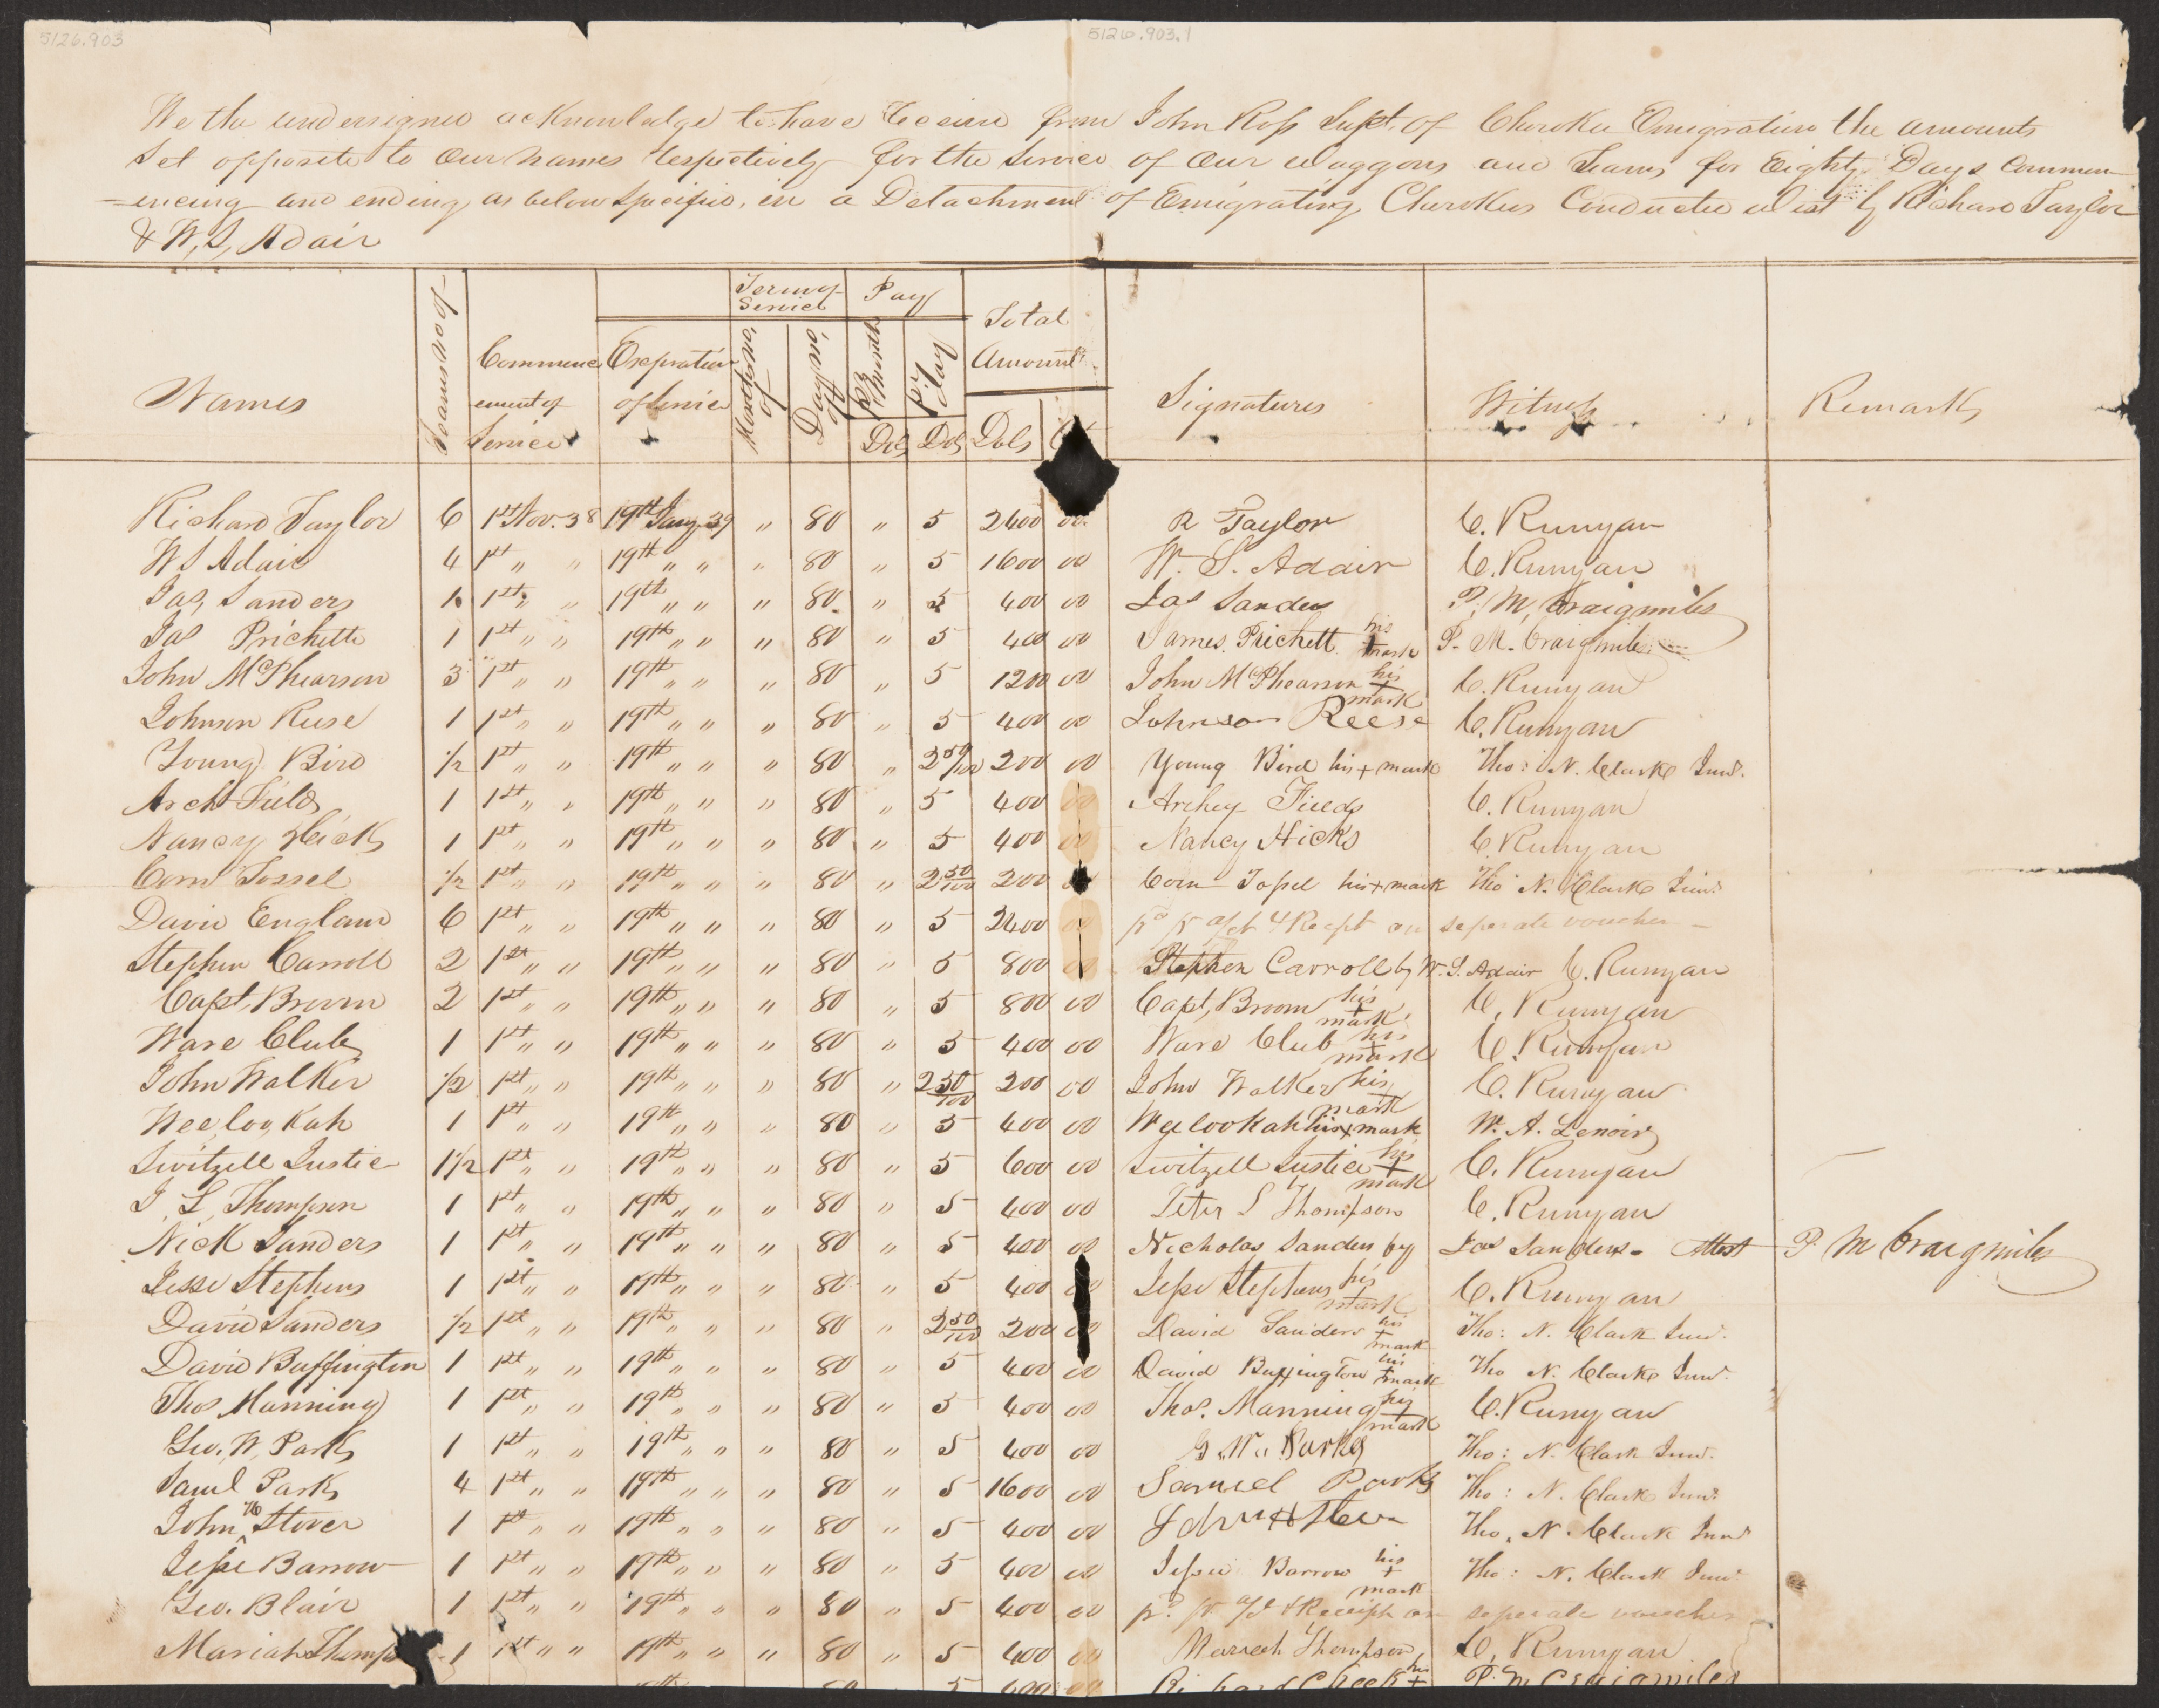 5126.903
5126.903.1
We the undersigned acknowledge to have Received from John Ross Supt. of Cherokee Emigration the amounts
Set opposite to Our names Respectively for the Service of Our Waggons and Teams for Eighty Days Commen
=encing and ending as below Specified, in a Detachment of Emigrating Cherokees Conducted West by Richard Taylor
& W, S, Adair
Names Teams No of Commencement of Service Expiration of Service Term of Service Months no, of Days no, of Pay Pr Month Dols Pr day Dols Total Amount Dols Signatures Witness Remarks
Richard Taylor 6 1st Nov. 38 19th Jany 39 " 80 " 5 2400 00 R Taylor C. Runyan
W S Adair 4 1st " " 19th " " " 80 " 5 1600 00 W. S. Adair C. Runyan
Jas, Sanders 1 1st " " 19th " " " 80 " 5 400 00 Jas Sanders P. M. Craigmiles
Jas Prichett 1 1st " " 19th " " " 80 " 5 400 00 James Prichett his + mark P. M. Craigmiles
John McPhearson 3 1st " " 19th " " " 80 " 5 1200 00 John McPhearson his + mark C. Runyan
Johnson Reese 1 1st " " 19th " " " 80 " 5 400 00 Johnson Reese C. Runyan
Young Bird 1/2 1st " " 19th " " " 80 " 2 50/100 200 00 Young Bird his + mark Tho: N. Clarke Junr.
Arch Fields 1 1st " " 19th " " " 80 " 5 400 00 Archey Fields C. Runyan
Nancy Hicks 1 1st " " 19th " " " 80 " 5 400 00 Nancy Hicks C Runyan
Corn Tassel 1/2 1st " " 19th " " " 80 " 2 50/100 200 Corn Tassel his + mark Tho N. Clark Junr.
David England 6 1st " " 19th " " " 80 " 5 2400 00 pd pr a/ct & Recept on seperate voucher
Stephen Carroll 2 1st " " 19th " " " 80 " 5 800 00 Stephen Carroll by W. S. Adair C. Runyan
Capt, Broom 2 1st " " 19th " " " 80 " 5 800 00 Capt, Broom his + mark C. Runyan
Ware Club 1 1st " " 19th " " " 80 " 5 400 00 Ware Club his + mark C. Runyan
John Walker 1/2 1st " " 19th " " " 80 " 2 50/100 200 00 John Walker his mark C. Runyan
Wee,loo,Kah 1 1st " " 19th " " " 80 " 5 400 00 Weelookah his x mark W. A. Lenoir
Switzell Justice 1 1/2 1st " " 19th " " " 80 " 5 600 00 Switzell Justice his + mark C. Runyan
J, L, Thompson 1 1st " " 19th " " " 80 " 5 400 00 Peter L Thompson C. Runyan
Nick Sanders 1 1st " " 19th " " " 80 " 5 400 00 Nicholas Sanders by Jas Sanders - Attest P M Craigmiles
Jesse Stephens 1 1st " " 19th " " " 80 " 5 400 Jesse Stephens his + mark C. Runyan
David Sanders 1/2 1st " " 19th " " " 80 " 2 50/100 200 David Sanders his + mark Tho: N. Clark Junr.
David Buffington 1 1st " " 19th " " " 80 " 5 400 00 David Buffington his + mark Tho N. Clarke Junr.
Thos Manning 1 1st " " 19th " " " 80 " 5 400 00 Thos. Manning his mark C. Runyan
Geo. W, Parks 1 1st " " 19th " " " 80 " 5 400 00 G. W. Parks Tho: N. Clark Junr.
Saml Parks 4 1st " " 19th " " " 80 " 5 1600 00 Samuel Parks Tho: N. Clark Junr.
John H Stover 1 1st " " 19th " " " 80 " 5 400 00 John H Stover Tho, N. Clark Junr
Jesse Barrow 1 1st " " 19th " " " 80 " 5 400 00 Jessee Barrow his + mark Tho: N. Clark Junr.
Geo. Blair 1 1st " " 19th " " " 80 " 5 400 00 pd. pr a/c & Receipt on seperate voucher
Mariah Thomps 1 1st " " 19th " " " 80 " 5 400 00 Marieah Thompson C. Runyan
5 400 Richard Cheek his + P. M Craigmiles